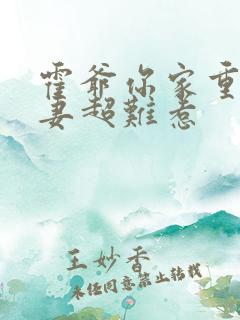 霍爷你家重
妻超難惹
王妙香
未经同意禁止转载